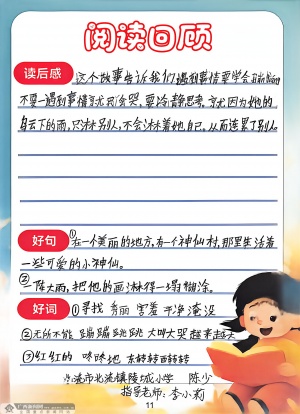 阅读回顾
读后感
这个故事告诉我们遇到事情要学会
不要一遇到事情就哭,要冷静思考,就因为她的
乌云下的雨,只淋别人,不会淋着她自己,从而连累了别人。
好句
①在一个美丽的地方,有一个神仙村,那里生活着
一些可爱的小神仙。
②一阵大雨,把他的画淋得一塌糊涂。
好词
①寻找 秀丽 害羞 干净 淹没
②无所不能 蹦蹦跳跳 大叫大哭 越来越大
③红红的 咚咚地 东转转西转转
北流市北流镇陵城小学 陈少
指导老师:李小莉
11